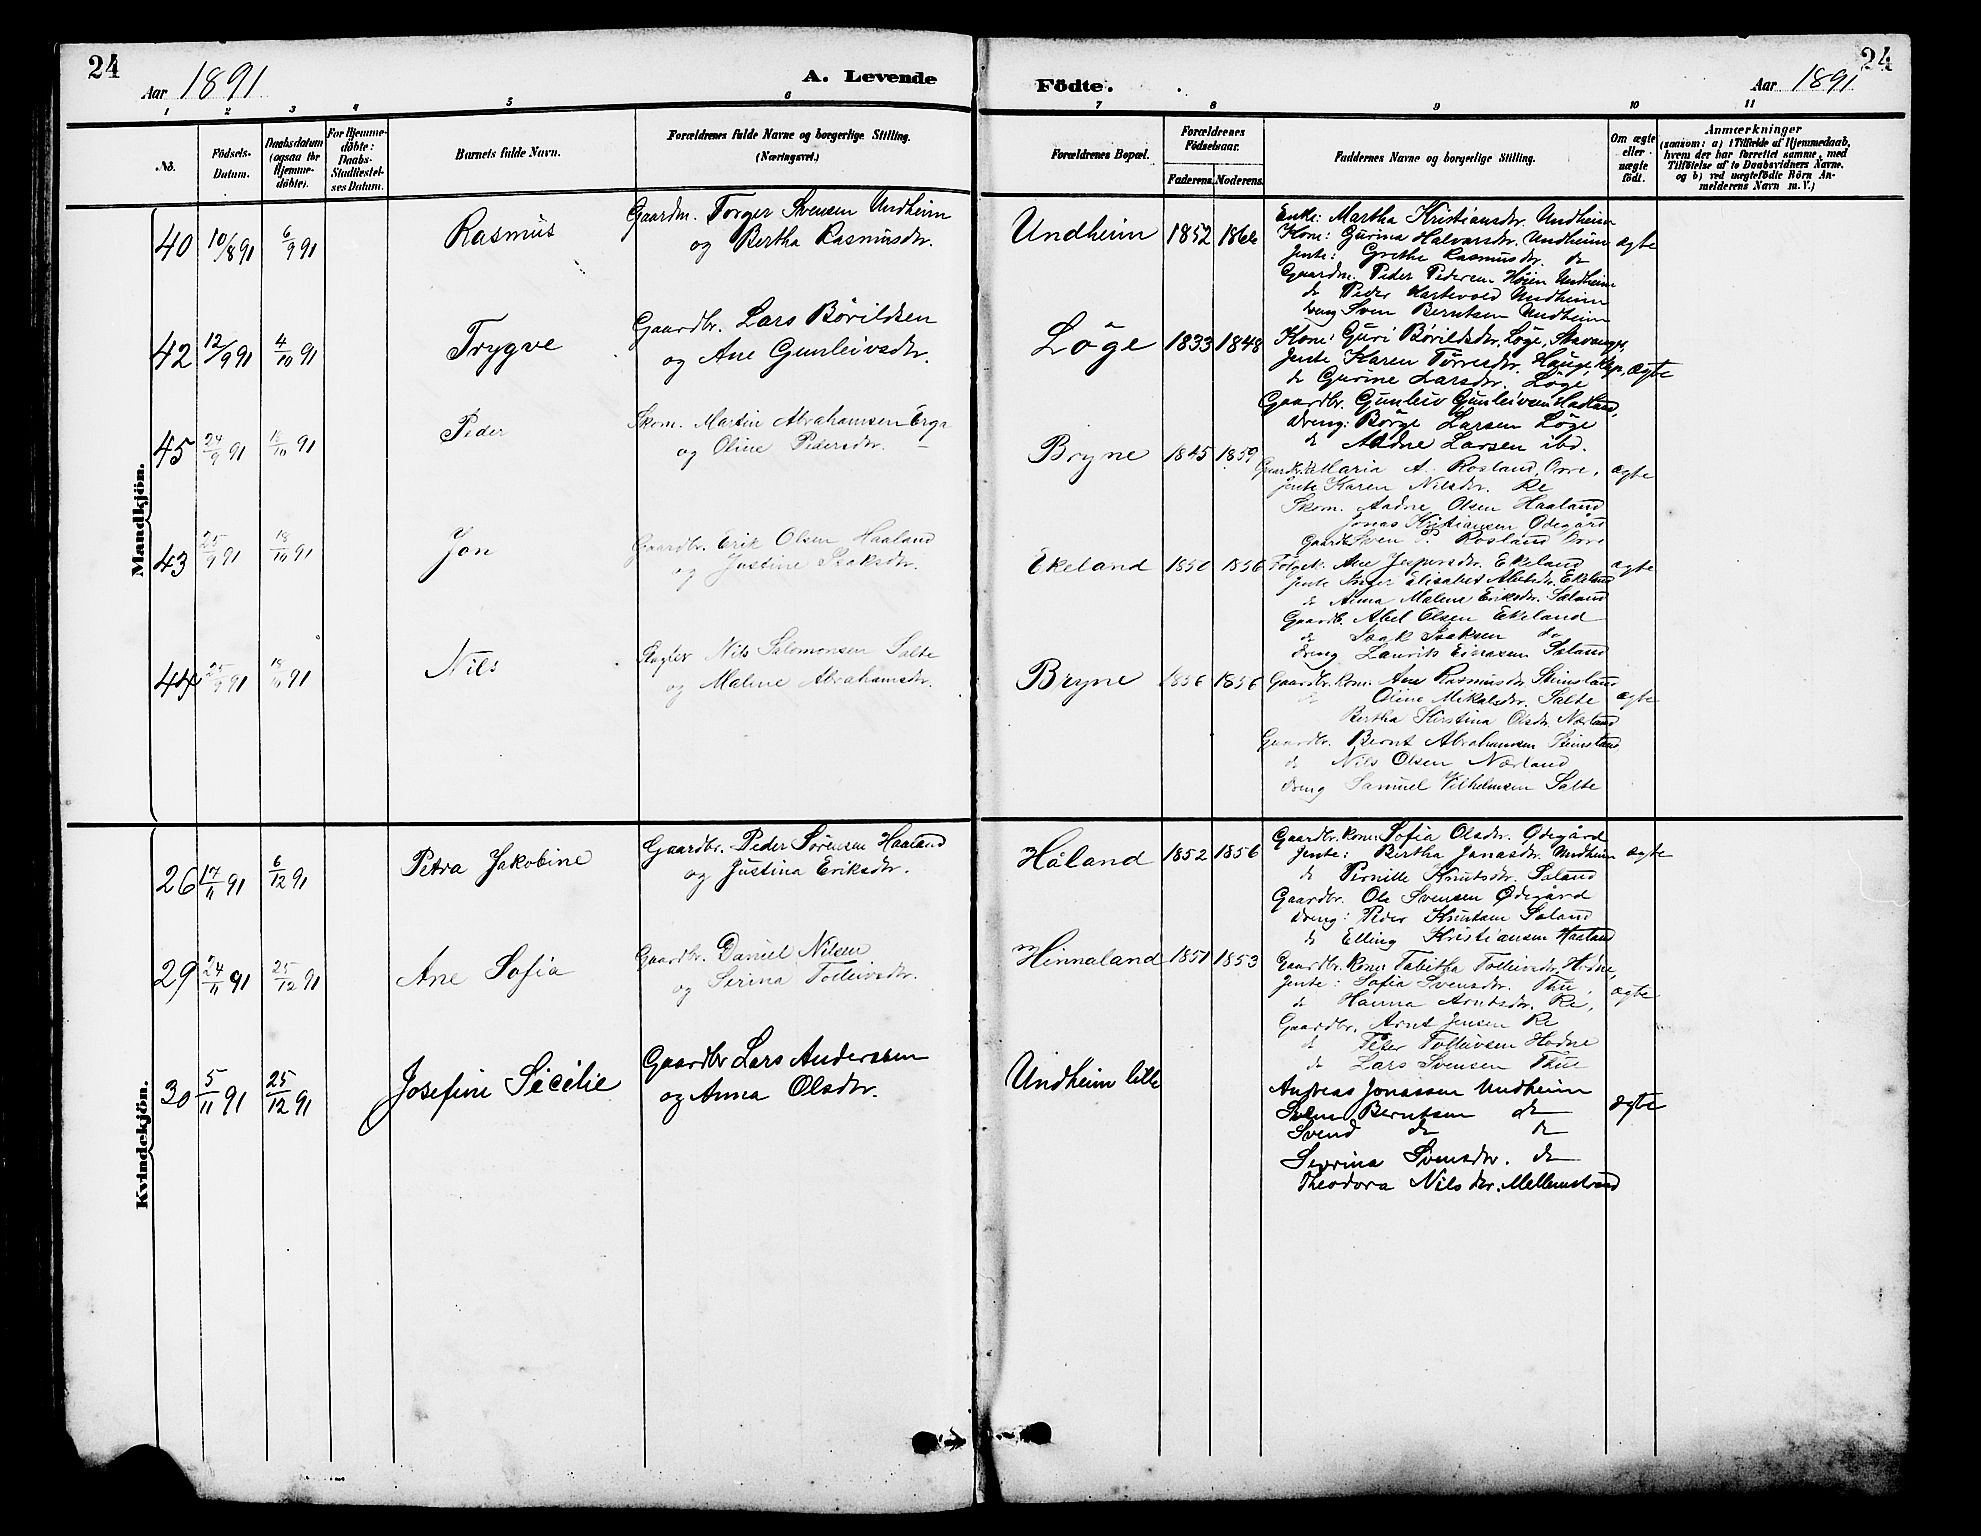 24
Aar 1891
A. Levende
Födte.
Aar 1891
24
1 2 3 4 5 6 7 8 9 10 11
No.
Födsels-Datum.
Daabsdatum (ogsaa for Hjemme-döbte).
For Hjemme-döbte: Daabs-Stadfæstel-ses Datum.
Barnets fulde Navn.
Forældrenes fulde Navne og borgerlige Stilling.
(Næringsvei.)
Forældrenes Bopæl.
Forældrenes Födselsaar.
Faderens. Moderens.
Faddernes Navne og borgerlige Stilling.
Om ægte eller uægte födt.
Anmærkninger
(saasom: a) i Tilfælde af Hjemmedaab, hvem der har forrettet samme, med Tilföielse af to Daabsvidners Navne, og b) ved uægtefödte Börn An-melderens Navn m. V.)
Mandkjön.
40 10/8 91 6/9 91 Rasmus
Gaardm. Torger Svensen Undheim
og Bertha Rasmusdr.
Undheim 1852 1866
Enke: Martha Kristiansdr. Undheim
Kone: Gurina Halvarsdr. Undheim ægte
Jente: Grethe Rasmusdr. do
Gaardm. Peder Pedersen Höjen Undheim
do Peder Undheim
Dreng Sven Berntsen Undheim
42 12/9 91 4/10 91 Trygve
Gaardbr. Lars Börildsen
og Ane Gunleivsdr.
Löge 1833 1848
Kone: Guri Börildsdr. Löge, Stavanger,
Jente Karen Törresdr. Hauge, Klep, ægte
do Gurine Larsdr. Löge
Gaardbr. Gunleiv Gunleivsen Hadland,
Dreng: Börge Larsen Löge
do Aadne Larsen ibd.
45 24/9 91 18/10 91 Peder
Skom. Martin Abrahamsen Erga
og Oline Pedersdr.
Bryne 1845 1859
Maria A. Rosland, Orre, ægte
Jente Karen Nilsdr. Re
Skom. Aadne Olsen Haaland
Jonas Kristiansen Ödegård
Gaardbr. Sven P. Rosland Orre
43 25/9 91 18/10 91 Jon
Gaardbr. Erik Olsen Haaland
og Justine Isaksdr.
Ekeland 1850 1856
Ane Jespersdr. Ekeland ægte
Jente Inger Elisabed Abelsdr. Ekeland
do Anna Malene Eriksdr. Söland
Gaardb. Abel Olsen Ekeland
do Isak Isaksen do
Dreng Laurits Söland
44 25/9 91 18/10 91 Nils
Nils Salomonsen Salte
og Malene Abrahamsdr.
Bryne 1856 1856
Gaardbr. kone: Ane Rasmusdr. Steinsland
do Oline Mikalsdr. Salte ægte
Bertha Kirstina Olsdr. Nærland
Gaardbr. Bernt Abrahamsen Steinsland
do Nils Olsen Nærland
Dreng Samuel Vilhelmsen Salte
Kvindekjön.
26 17/11 91 6/12 91 Petra Jakobine
Gaardbr. Peder Sörensen Haaland
og Justina Eriksdr.
Håland 1852 1856
Gaardbr. kone: Sofia Olsdr. Ödegård
Jente: Bertha Jonasdr. Undheim ægte
do Pernille Knutsdr. Söland
Gaardbr. Ole Svensen Ödegård
Dreng: Peder Knutsen Söland
do Elling Kristiansen Haaland
29 24/11 91 25/12 91 Ane Sofia
Gaardbr. Daniel Nilsen
og Serina Tolleivsdr.
Hinnaland 1851 1853
Gaardbr. kone: Tabitha Tolleivsdr. Hodne,
Jente: Sofia Svensdr. Thue, ægte
do Hanna Arntsdr. Re,
Gaardbr. Arnt Jensen Re
do Peter Tolleivsen Hodne
do Lars Svensen Thue
30 5/11 91 25/12 91 Josefine Sicelie
Gaardbr Lars Anderssen
og Anna Olsdtr.
Undheim lille
Andreas Jonassen Undheim
Berntsen do ægte
Svend do do
Serrina Svensdr. do
Theodora Nilsdtr. Mellemstrand